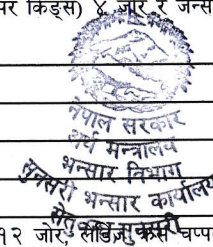 पर किड्स) ४ जोर र जेन्स
नेपाल सरकार
अर्थ मन्त्रालय
भन्सार विभाग
सुनसरी भन्सार कार्यालय
१२ जोर, लेडिज फर्स चप्प